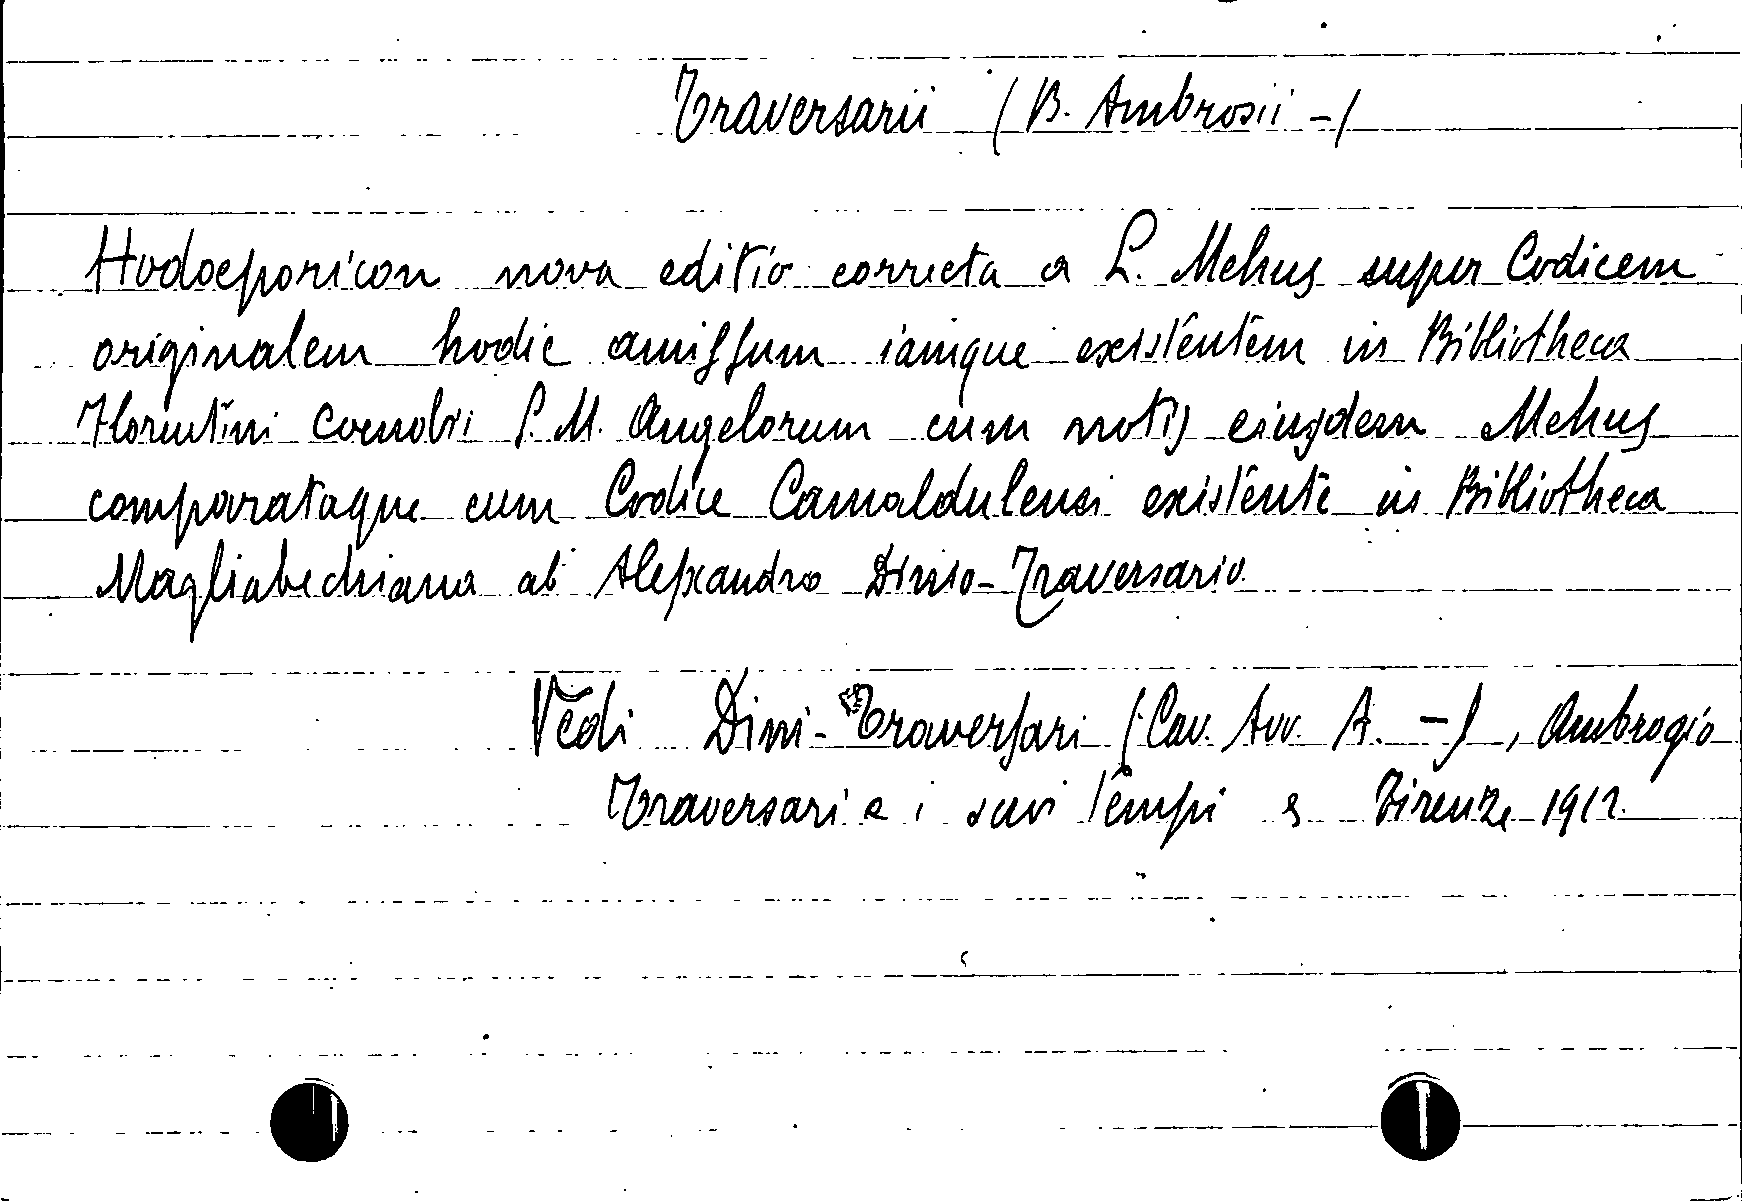 Traversarii (B. Ambrosii -)
Hodoeporicon nova editio correcta a L. Mehus super Codicem
originalem hodie amissum iamque existentem in Bibliotheca
Florentini Coenobii S. M. Angelorum cum notis eiusdem Mehus
comparataque cum Codice Camaldulensi existente in Bibliotheca
Magliabechiana ab Alexandro Dinio-Traversario.
Vedi Dini-Traversari (Cav. Avv. A. -), Ambrogio
Traversari e i suoi tempi Firenze 1912.